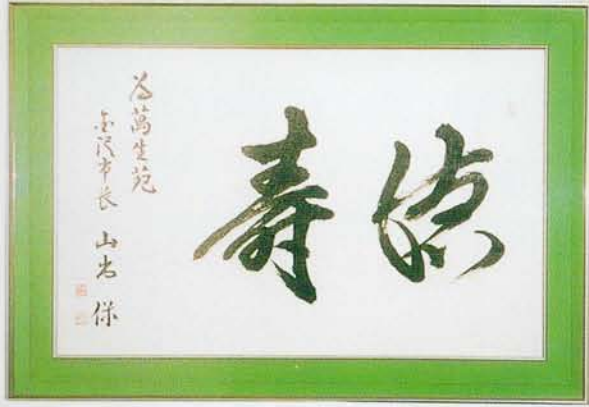 徳寿
為萬生苑
金沢市長 山出 保